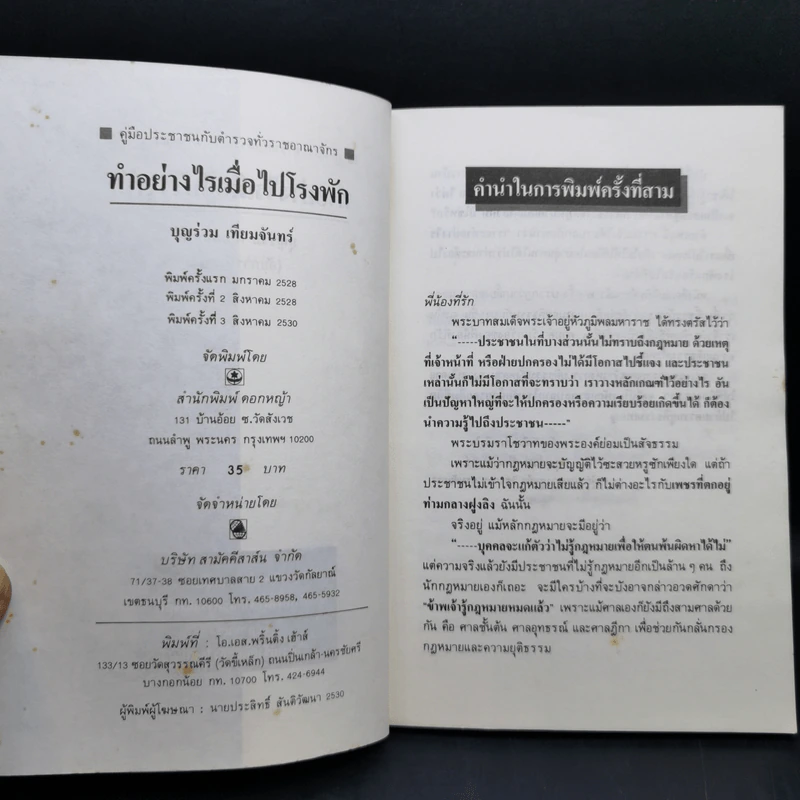 คู่มือประชาชนกับตำรวจทั่วราชอาณาจักร
ทำอย่างไรเมื่อไปโรงพัก
บุญร่วม เทียมจันทร์
พิมพ์ครั้งแรก มกราคม 2528
พิมพ์ครั้งที่ 2 สิงหาคม 2528
พิมพ์ครั้งที่ 3 สิงหาคม 2530
จัดพิมพ์โดย
สำนักพิมพ์ ดอกหญ้า
131 บ้านอ้อย ซ.วัดสังเวช
ถนนลำพู พระนคร กรุงเทพฯ 10200
ราคา 35 บาท
จัดจำหน่ายโดย
บริษัท สามัคคีสาส์น จำกัด
71/37-38 ซอยเทศบาลสาย 2 แขวงวัดกัลยาณ์
เขตธนบุรี กท. 10600 โทร. 465-8958, 465-5932
พิมพ์ที่ : โอ.เอส.พริ้นติ้ง เฮ้าส์
133/13 ซอยวัดสุวรรณคีรี (วัดขี้เหล็ก) ถนนปิ่นเกล้า-นครชัยศรี
บางกอกน้อย กท. 10700 โทร. 424-6944
ผู้พิมพ์ผู้โฆษณา : นายประสิทธิ์ สันติวัฒนา 2530
คำนำในการพิมพ์ครั้งที่สาม
พี่น้องที่รัก
พระบาทสมเด็จพระเจ้าอยู่หัวภูมิพลมหาราช ได้ทรงตรัสไว้ว่า
"-----ประชาชนในที่บางส่วนนั้นไม่ทราบถึงกฎหมาย ด้วยเหตุ
ที่เจ้าหน้าที่ หรือฝ่ายปกครองไม่ได้มีโอกาสไปชี้แจง และประชาชน
เหล่านั้นก็ไม่มีโอกาสที่จะทราบว่า เราวางหลักเกณฑ์ไว้อย่างไร อัน
เป็นปัญหาใหญ่ที่จะให้ปกครองหรือความเรียบร้อยเกิดขึ้นได้ ก็ต้อง
นำความรู้ไปถึงประชาชน-----"
พระบรมราโชวาทของพระองค์ย่อมเป็นสัจธรรม
เพราะแม้ว่ากฎหมายจะบัญญัติไว้ซะสวยหรูซักเพียงใด แต่ถ้า
ประชาชนไม่เข้าใจกฎหมายเสียแล้ว ก็ไม่ต่างอะไรกับเพชรที่ตกอยู่
ท่ามกลางฝูงลิง ฉันนั้น
จริงอยู่ แม้หลักกฎหมายจะมีอยู่ว่า
"-----บุคคลจะแก้ตัวว่าไม่รู้กฎหมายเพื่อให้ตนพ้นผิดหาได้ไม่"
แต่ความจริงแล้วยังมีประชาชนที่ไม่รู้กฎหมายอีกเป็นล้าน ๆ คน ถึง
นักกฎหมายเองก็เถอะ จะมีใครบ้างที่จะบังอาจกล่าวอวดศักดาว่า
"ข้าพเจ้ารู้กฎหมายหมดแล้ว" เพราะแม้ศาลเองก็ยังมีถึงสามศาลด้วย
กัน คือ ศาลชั้นต้น ศาลอุทธรณ์ และศาลฎีกา เพื่อช่วยกันกลั่นกรอง
กฎหมายและความยุติธรรม